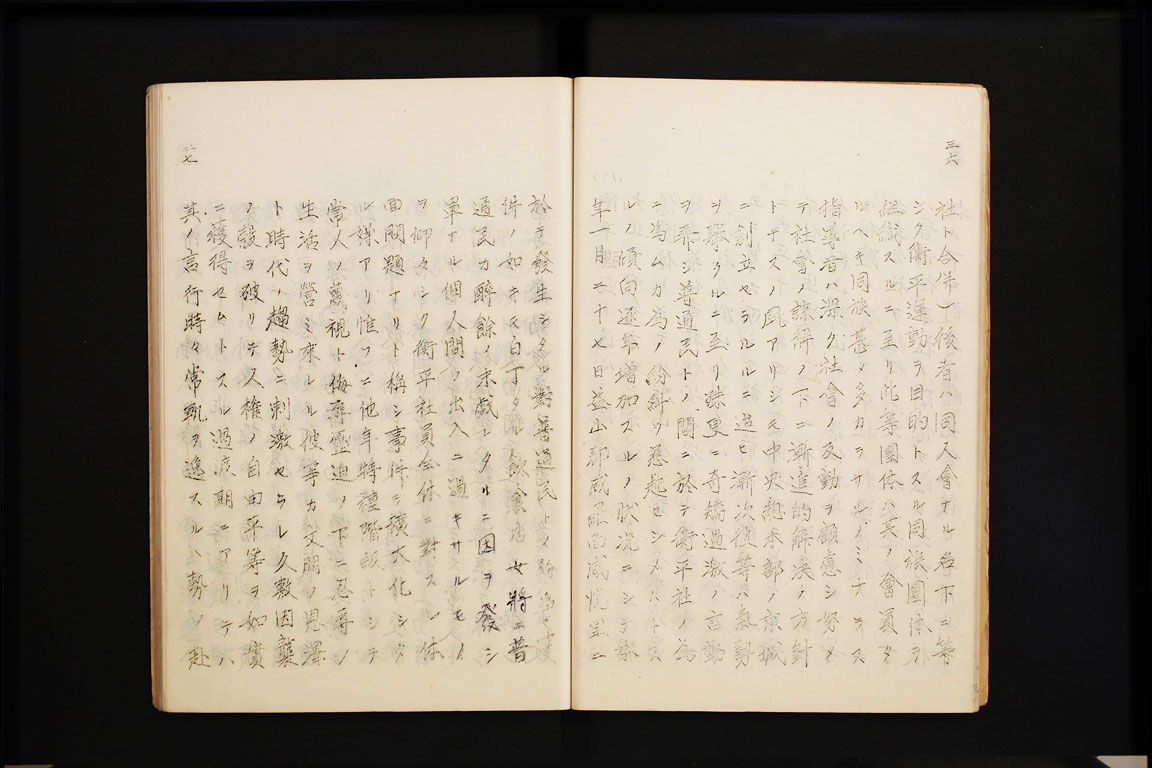 三六
社ト合併)後者ハ同人會ナル名下ニ等
シク衡平運動ヲ目的トスル同族團体ヲ
組織スルニ至リ此等團体ハ其ノ會員タ
ルヘキ同族甚タ多カラサルノミナラス
指導者ハ深ク社會ノ反動ヲ顧慮シ努メ
テ社會ノ諒解ノ下ニ漸進的解決ノ方針
トナスノ風アリシモ中央總本部ノ京城
ニ創立セラルルニ迨ヒ漸次彼等ハ氣勢
ヲ擧クルニ至リ殊更ニ奇矯過激ノ言動
ヲ耶シ普通民トノ間ニ於テ衡平社ノ為
ニ為ムカ為ノ紛糾ヲ惹起セシメムトス
ルノ傾向逐年増加スルノ狀況ニシテ昨
年一月二十七日益山郡咸羅面咸悅里ニ
三七
於テ發生シタル對普通民トノ紛爭事
件ノ如キモ白丁タル飲食店女將ニ普
通民カ醉餘ノ末戲レタルニ因ヲ發シ
單ナル個人間ノ出入ニ過キサルモノ
ヲ仰々シク衡平社員全体ニ對スル体
面問題ナリト稱シ事件ヲ擴大化シタ
ル嫌アリ惟フニ他年特種階級トシテ
常人ノ蔑視ト侮辱壓迫ノ下ニ忍辱ノ
生活ヲ營ミ來レル彼等カ文開ノ恩澤
ト時代ノ趨勢ニ刺激セラレ久敷因襲
ノ殼ヲ破リテ人權ノ自由平等ヲ如實
ニ獲得セムトスル過渡期ニアリテハ
其ノ言行時々常軌ヲ逸スルハ勢ノ赴